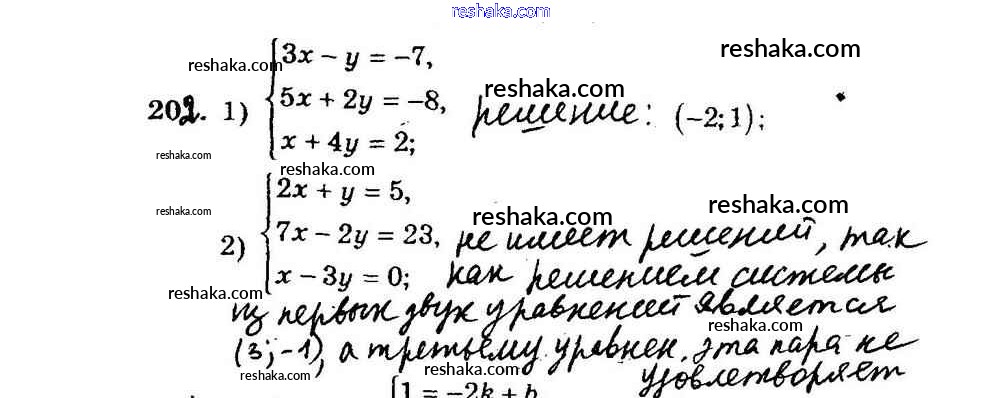 reshaka.com
3x − y = −7,
reshaka.com
reshaka.com
202. 1) 5x + 2y = −8, решение: (−2; 1);
reshaka.com
reshaka.com
x + 4y = 2;
reshaka.com
2x + y = 5,
reshaka.com
reshaka.com
reshaka.com
2) 7x − 2y = 23, не имеет решений, так
x − 3y = 0; как решением системы
reshaka.com
из первых двух уравнений является
reshaka.com
(3; −1), а третьему уравнен. эта пара не
reshaka.com
reshaka.com
удовлетворяет
1 = −2k + b